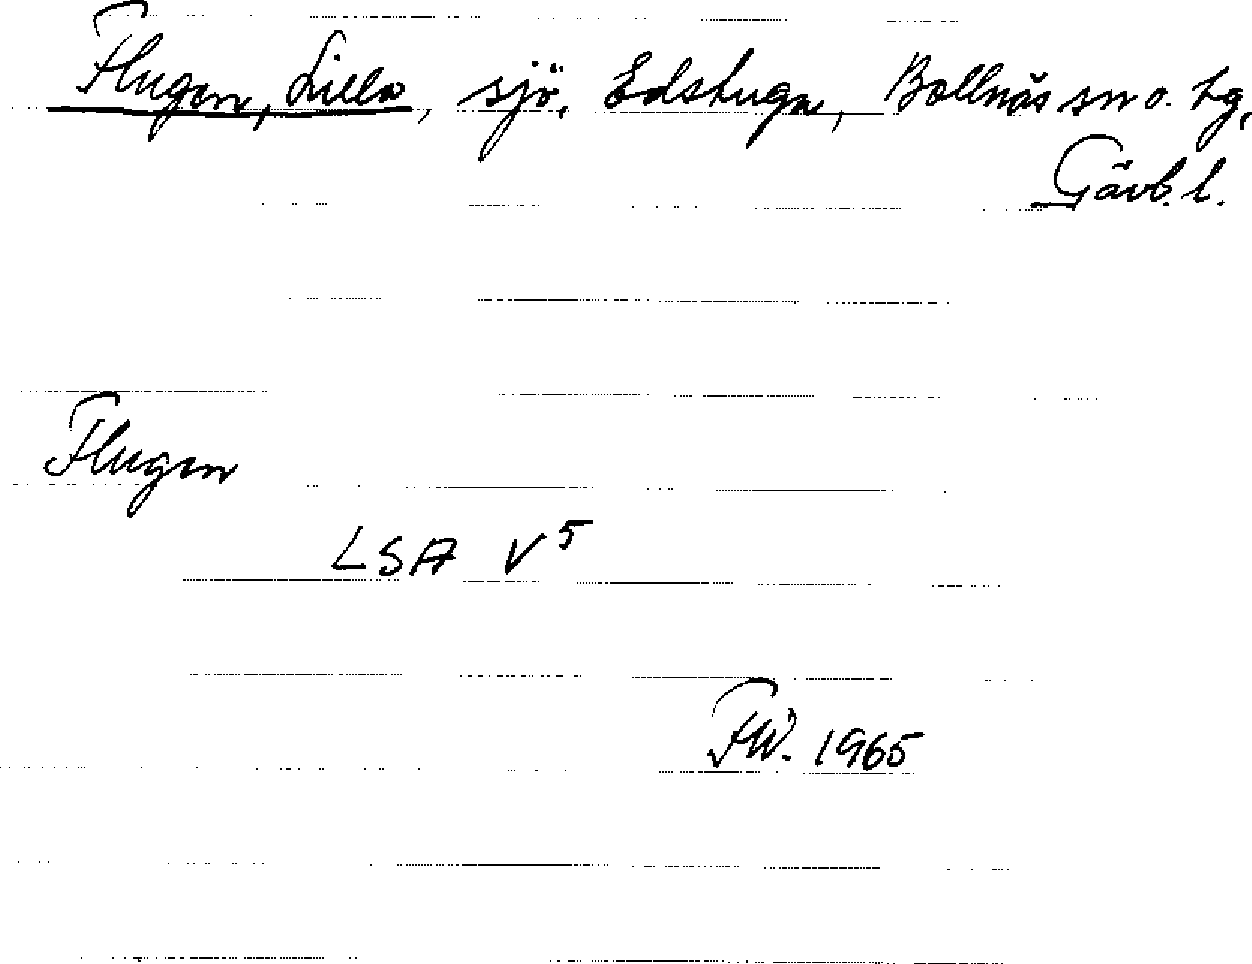 Flugen, Lilla, sjö, Edstuga, Bollnäs sn o. tg,
Gävb. l.
Flugen
LSA V5
FW. 1965